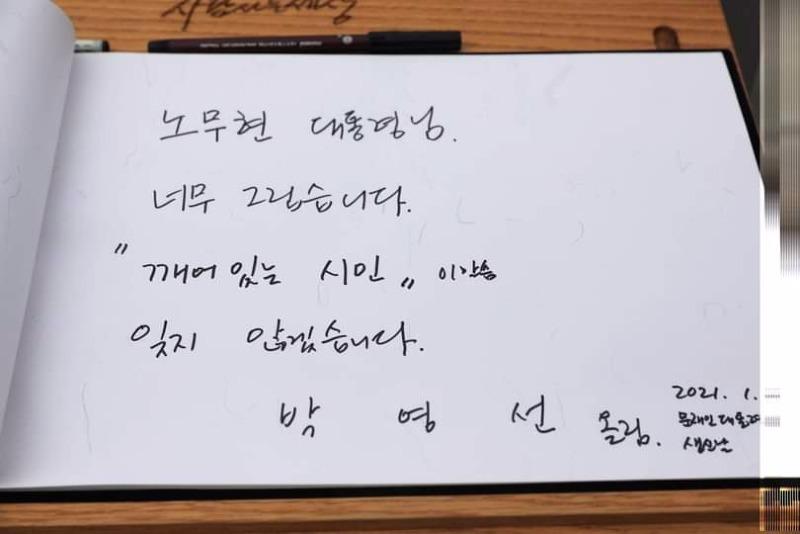 사람사는세상
노무현 대통령님.
너무 그립습니다.
"깨어있는 시민" 이 말씀
잊지 않겠습니다.
박 영 선 올림.
2021. 1.
문재인대통령
생신날